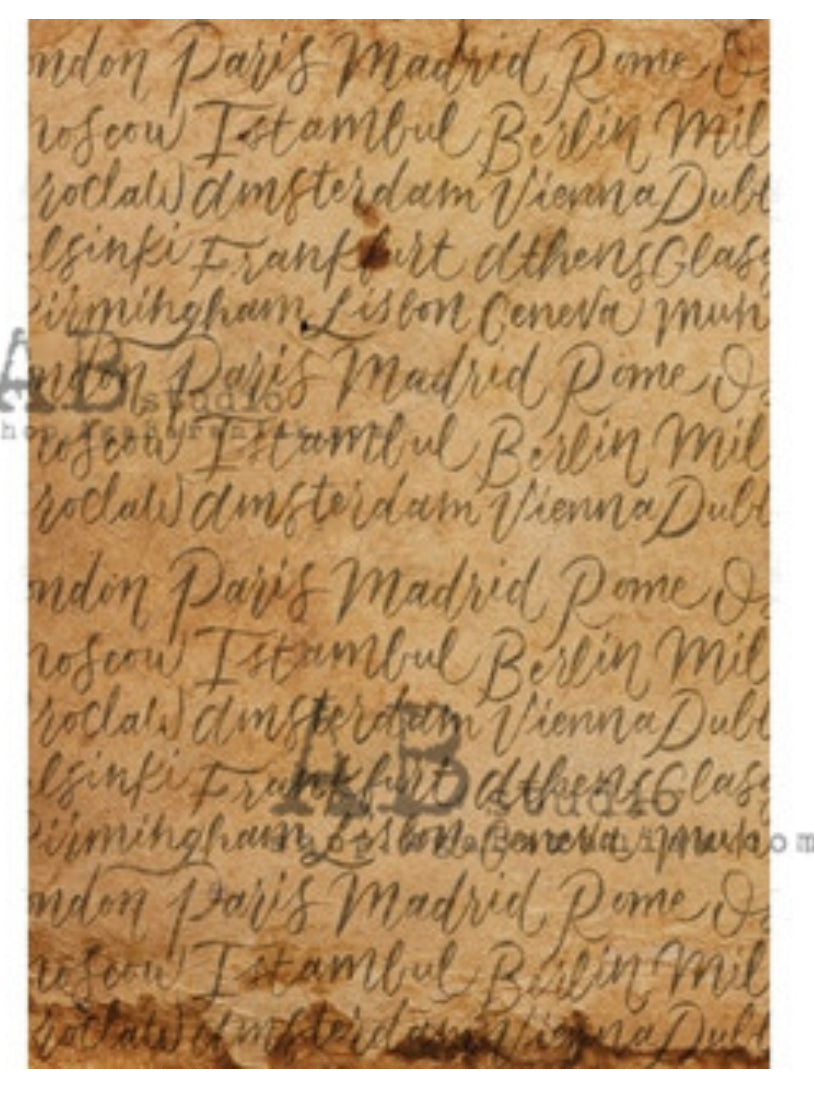 ondon Paris Madrid Rome O
noscow Istambul Berlin Mil
roclaw Amsterdam Vienna Dubl
lsinki Frankfurt Athens Glasg
irmingham Lisbon Geneva Mun
ondon Paris Madrid Rome Os
AB studio
noscow Istambul Berlin Mil
roclaw Amsterdam Vienna Dubl
ondon Paris Madrid Rome Os
noscow Istambul Berlin Mil
roclaw Amsterdam Vienna Dubl
lsinki Frankfurt Athens Glasg
AB studio
irmingham Lisbon Geneva Mun
ondon Paris Madrid Rome Os
noscow Istambul Berlin Mil
roclaw Amsterdam Vienna Dubl